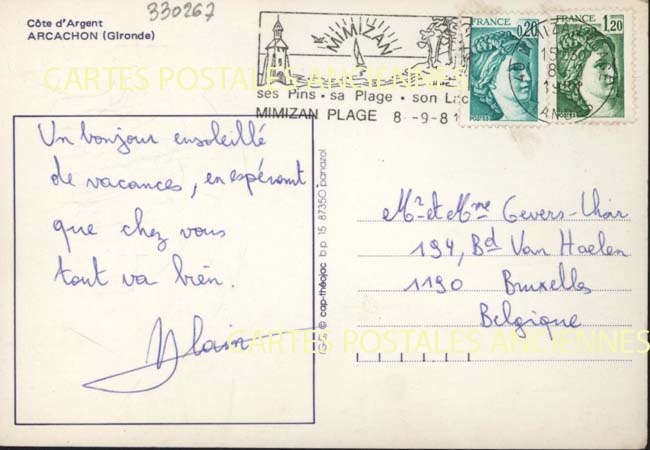 Côte d'Argent
ARCACHON (Gironde)
330267
MIMIZAN
ses Pins • sa Plage • son Lac
MIMIZAN PLAGE 8 -9-81
FRANCE
0,20
POSTES
FRANCE
1,20
POSTES
CARTES POSTALES ANCIENNES
Un bonjour ensoleillé
de vacances, en espérant
que chez vous
tout va bien.
Alain
© cap-théojac b.p. 15 87350 panazol
Mr et Mme Gevers-
194, Bd Van Haelen
1190 Bruxelles
Belgique
CARTES POSTALES ANCIENNES